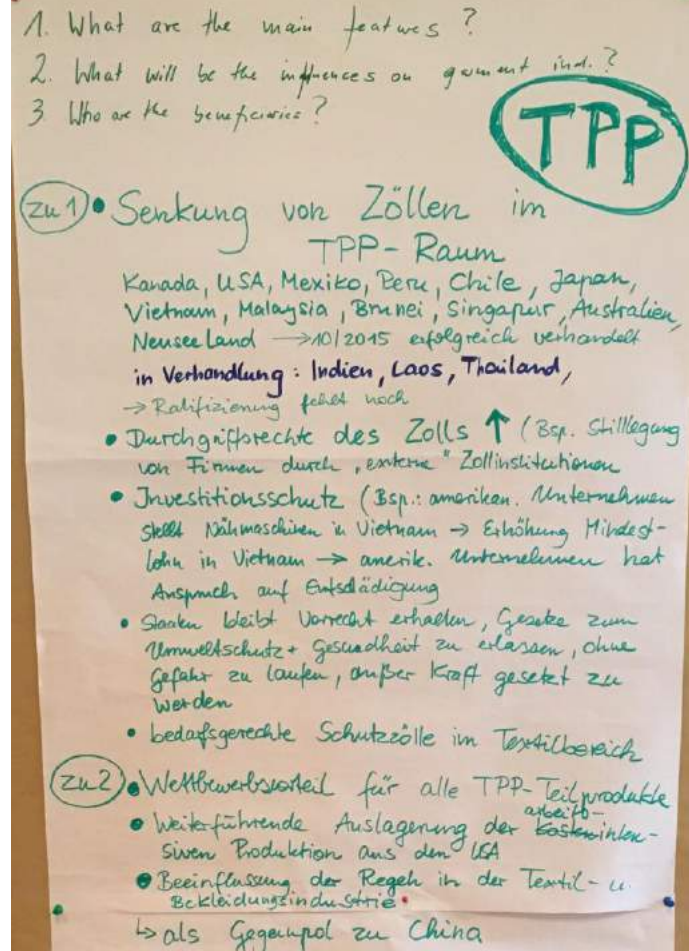 1. What are the main features?
2. What will be the influences on garment ind.?
3. Who are the beneficiaries?
TPP
zu 1) • Senkung von Zöllen im
TPP-Raum
Kanada, USA, Mexiko, Peru, Chile, Japan,
Vietnam, Malaysia, Brunei, Singapur, Australien,
Neuseeland → 10/2015 erfolgreich verhandelt
in Verhandlung: Indien, Laos, Thailand,
→ Ratifizierung fehlt noch
• Durchgriffsrechte des Zolls ↑ (Bsp. Stilllegung
von Firmen durch "externe" Zollinstitutionen
• Investitionsschutz (Bsp.: amerikan. Unternehmen
stellt Nähmaschinen in Vietnam → Erhöhung Mindest-
lohn in Vietnam → amerik. Unternehmen hat
Anspruch auf Entschädigung
• Staaten bleibt Vorrecht erhalten, Gesetze zum
Umweltschutz + Gesundheit zu erlassen, ohne
Gefahr zu laufen, außer Kraft gesetzt zu
werden
• bedarfsgerechte Schutzzölle im Textilbereich
zu 2) • Wettbewerbsvorteil für alle TPP-Teilprodukte
• Weiterführende Auslagerung der arbeits-inten-
siven Produktion aus den USA
• Beeinflussung der Regeln in der Textil- u.
Bekleidungsindustrie
↳ als Gegenpol zu China